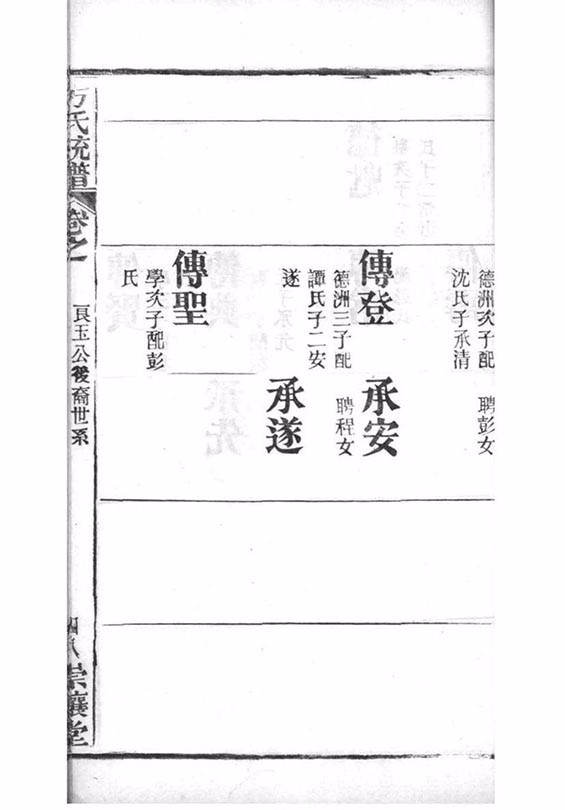 德洲次子配
沈氏子承清
聘彭女
傳登
德洲三子配
譚氏子二安
遂
承安
聘程女
承遂
傳聖
學次子配彭
氏
方氏統譜
卷之
良玉公後裔世系
四八
崇讓堂